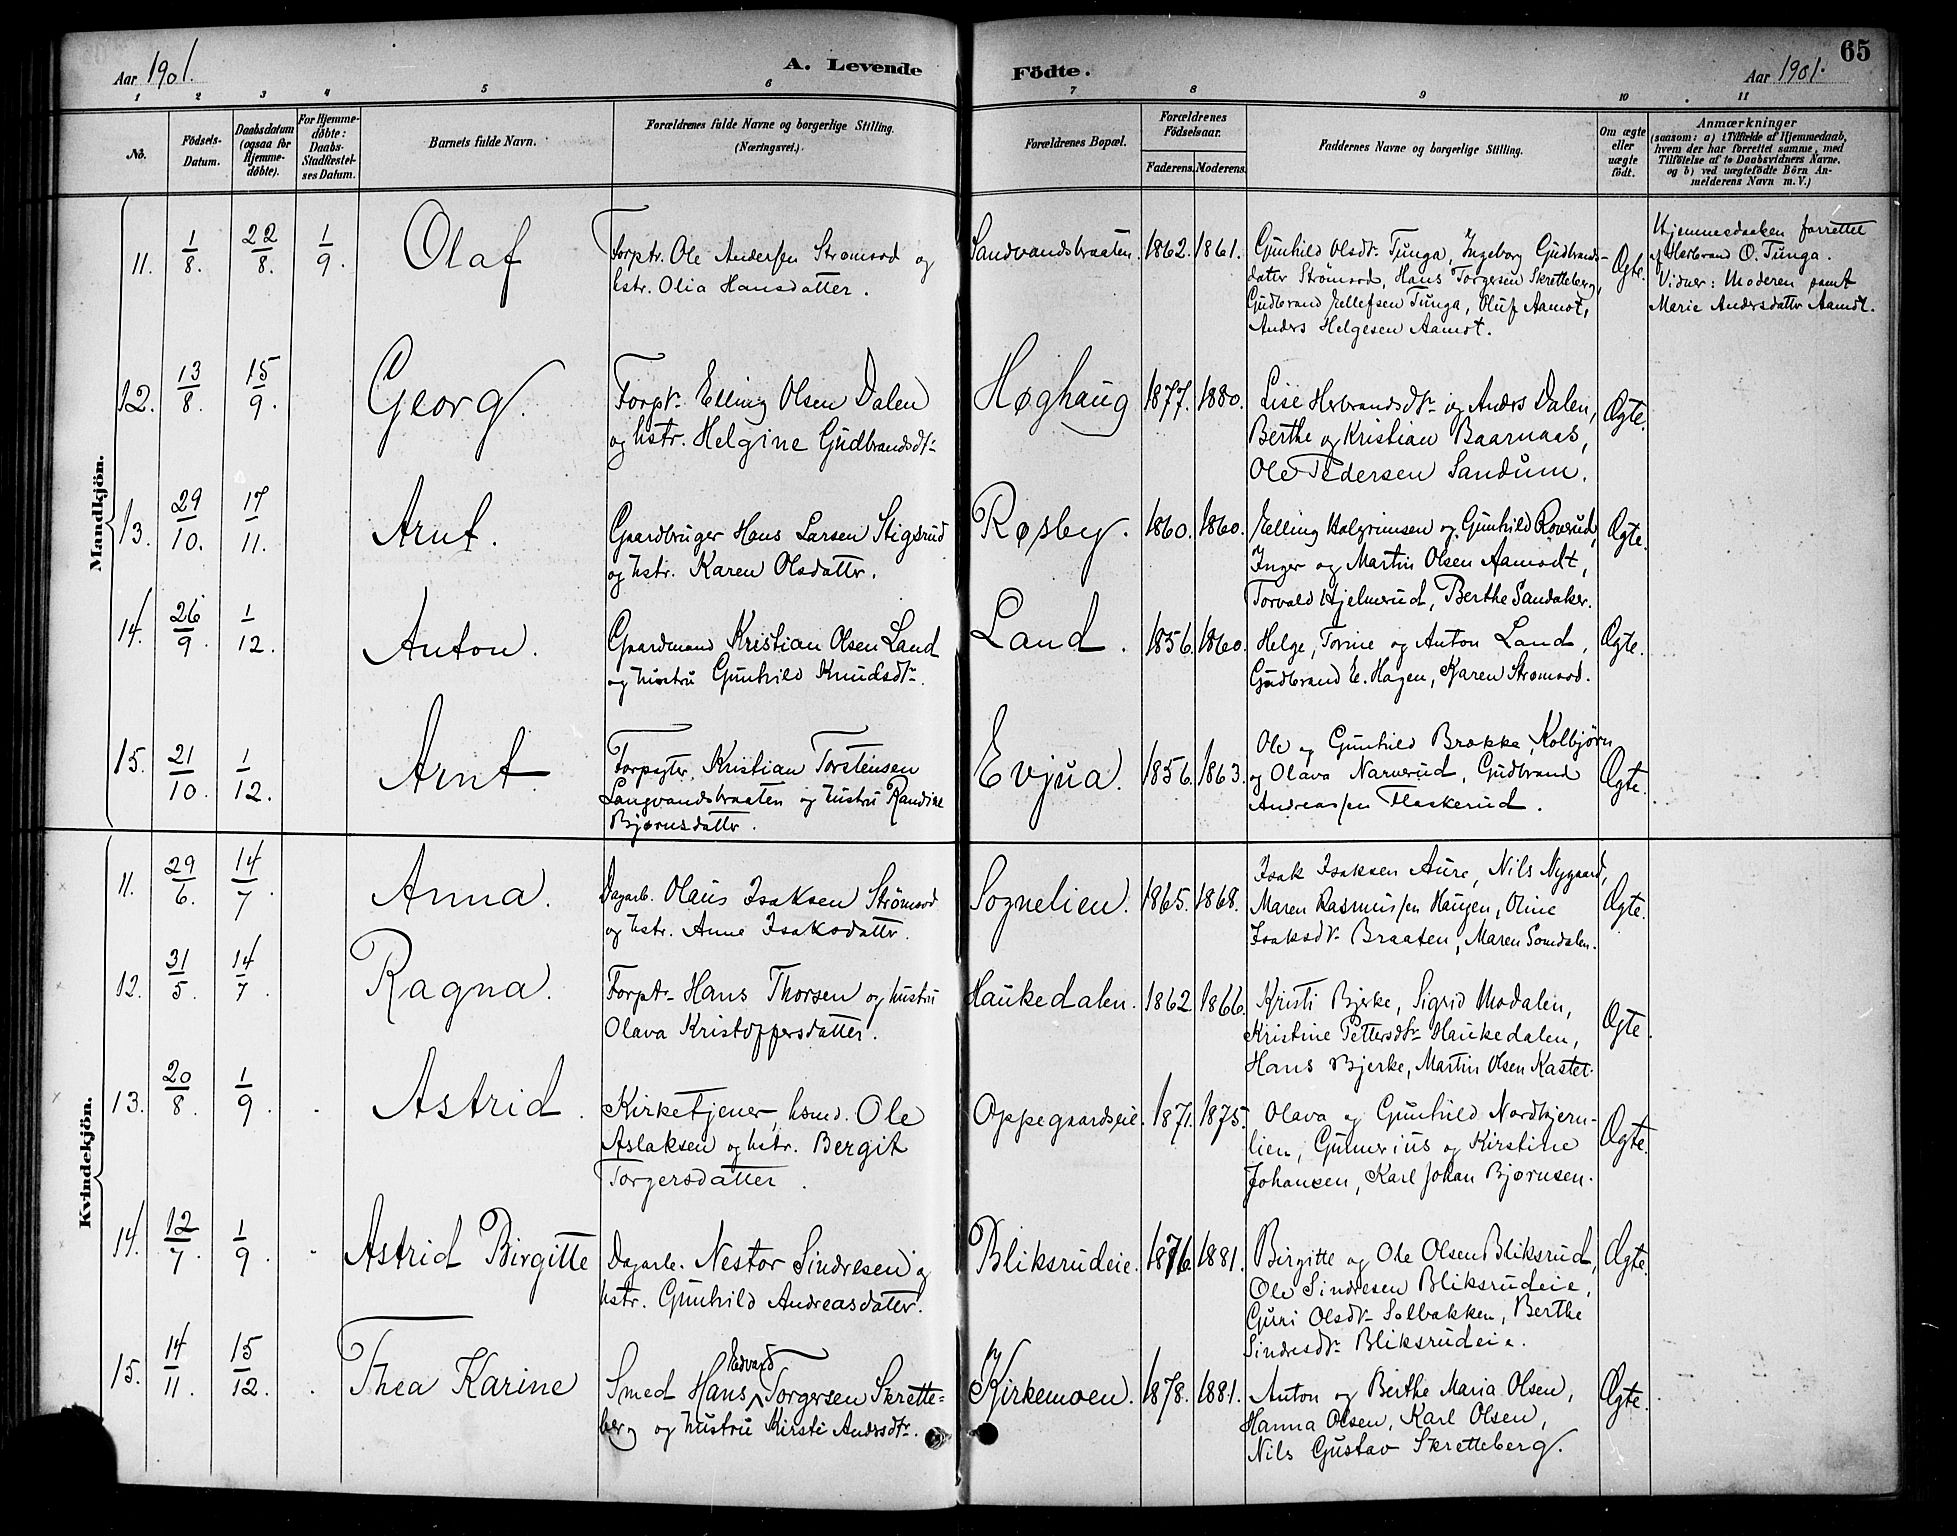 Aar 1901.
A. Levende Födte.
Aar 1901.
65
1 2 3 4 5 6 7 8 9 10 11
No.
Födsels-Datum.
Daabsdatum (ogsaa for Hjemmedøbte).
For Hjemmedøbte: Daabs-Stadfæstelses Datum.
Barnets fulde Navn.
Forældrenes fulde Navne og borgerlige Stilling.
(Næringsvei.)
Forældrenes Bopæl.
Forældrenes Födselsaar.
Faderens. Moderens.
Faddernes Navne og borgerlige Stilling.
Om ægte eller uægte født.
Anmærkninger
(saasom: a) i Tilfælde af Hjemmedaab,
hvem der har forrettet samme, med
Tilföielse af to Daabsvidners Navne,
og b) ved uægtefödte Börn An-
melderens Navn m. V.)
Mandkjön.
11. 1/8. 22/8. 1/9. Olaf
Forptr. Ole Andersen Strømsod og
hstr. Olia Hansdatter.
Sandvandsbraaten. 1862. 1861.
Gunhild Olsdtr Tunga, Ingeborg Gudbrands-
datter Strømsod, Hans Torgersen Skretteberg,
Gudbrand Ellefsen Tunga, Oluf Aamot,
Anders Helgesen Aamot.
Ægte.
Hjemmedaaben forrettet
af Herbrand O. Tunga.
Vidner: Moderen samt
Marie Andersdatter Aamot.
12. 13/8. 15/9. Georg.
Forptr Elling Olsen Dalen
og hstr. Helgine Gudbrandsdtr
Høghaug 1877. 1880.
Lise Herbrandsdtr og Anders Dalen,
Berthe og Kristian Baarnaas,
Ole Pedersen Sandum.
Ægte.
13. 29/10. 17/11. Arnt.
Gaardbruger Hans Larsen Stigsrud
og hstr. Karen Olsdatter.
Røsby. 1860. 1860.
Elling Halgrimsen og Gunhild Roverud,
Inger og Martin Olsen Aamodt,
Torvald Hjelmerud, Berthe Sandaker.
Ægte.
14. 26/9. 1/12. Anton.
Gaardmand Kristian Olsen Land
og hustru Gunhild Knudsdtr.
Land. 1856. 1860.
Helge, Torine og Anton Land,
Gudbrand E. Hagen, Karen Strømsod.
Ægte.
15. 21/10. 1/12. Arnt
Forpagter. Kristian Torstensen
Langvandsbraaten og hustru Randine
Bjørnsdatter.
Evjua. 1856. 1863.
Ole og Gunhild Brække, Kolbjørn
og Olava Narverud, Gudbrand
Andreassen Flaskerud.
Ægte.
Kvindekjön.
11. 29/6. 14/7. Anna.
Dagarb. Olaus Isaksen Strømsod
og hstr. Anne Isaksdatter.
Sognelien. 1865. 1868.
Isak Isaksen Aure, Nils Nygaard,
Maren Rasmussen Haugen, Oline
Isaksdtr Braaten, Maren Somdalen.
Ægte.
12. 31/5. 14/7. Ragna.
Forptr Hans Thorsen og hustru
Olava Kristoffersdatter.
Haukedalen. 1862 1866.
Kristi Bjerke, Sigrid Modalen,
Kristine Pettersdtr Haukedalen,
Hans Bjerke, Martin Olsen Kastet.
Ægte.
13. 20/8. 1/9. Astrid.
Kirketjener, hsmd. Ole
Aslaksen og hstr. Bergit
Torgersdatter.
Oppegaardseie. 1871. 1875.
Olava og Gunhild Nordbjern-
lien, Gunerius og Kirstine
Johansen, Karl Johan Bjørnsen.
Ægte.
14. 12/7. 1/9. Astrid Birgitte
Dagarb. Nestor Sindresen og
hstr. Gunhild Andreasdatter.
Bliksrudeie. 1876. 1881.
Birgitte og Ole Olsen Bliksrud,
Ole Sindresen Bliksrudeie,
Guri Olsdtr Solbakken, Berthe
Sindresdtr Bliksrudeie.
Ægte.
15. 14/11. 15/12. Thea Karine
Smed Hans Edvard Torgersen Skrette-
berg og hustru Kirsti Andersdtr.
Kirkemoen. 1878. 1881.
Anton og Berthe Maria Olsen,
Hanna Olsen, Karl Olsen,
Nils Gustav Skretteberg.
Ægte.